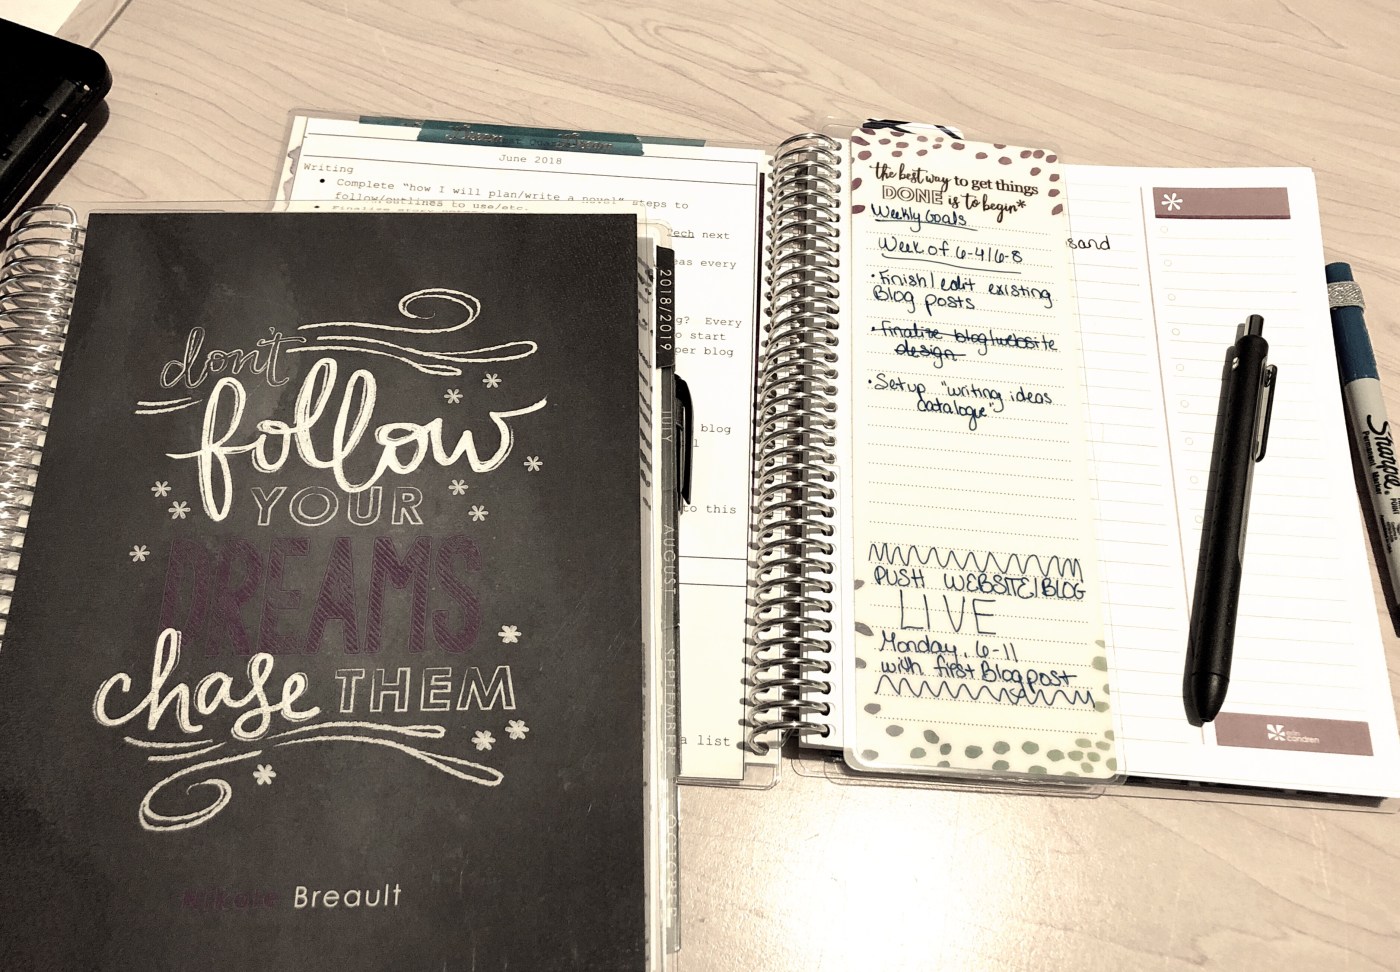 don't
follow
YOUR
DREAMS
chase THEM
Breault
2018/2019
JULY
AUGUST
SEPTEMBER
OCTOBER
June 2018
Writing
• Complete "how I will plan/write a novel" steps to
follow/outlines to use/etc.
Tech next
eas every
g? Every
o start
per blog
blog
to this
a list
the best way to get things
DONE is to begin*
Weekly Goals
Week of 6-4/6-8
• Finish/edit existing
Blog posts
• Finalize blog/website
design
• Setup "writing ideas
catalogue"
PUSH WEBSITE/BLOG
LIVE
Monday, 6-11
with first Blog post
sand
erin
condren
Sharpie
Permanent Marker